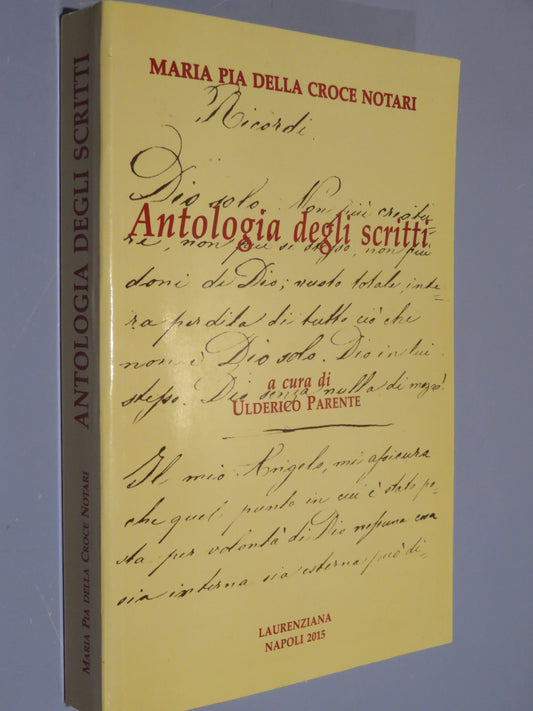 MARIA PIA DELLA CROCE NOTARI
Ricordi.
Dio solo. Non più creatu-
Antologia degli scritti
re, non più se stesso, non più
doni di Dio; vuoto totale, inte-
ra perdita di tutto ciò che
non è Dio solo. Dio in lui
a cura di
stesso. Dio senza nulla di mezzo!
ULDERICO PARENTE
Il mio Angelo, mi assicura
che quel punto in cui è stato po-
sta per volontà di Dio nessuna cosa
sia interna sia esterna può di-
LAURENZIANA
NAPOLI 2015
MARIA PIA DELLA CROCE NOTARI ANTOLOGIA DEGLI SCRITTI